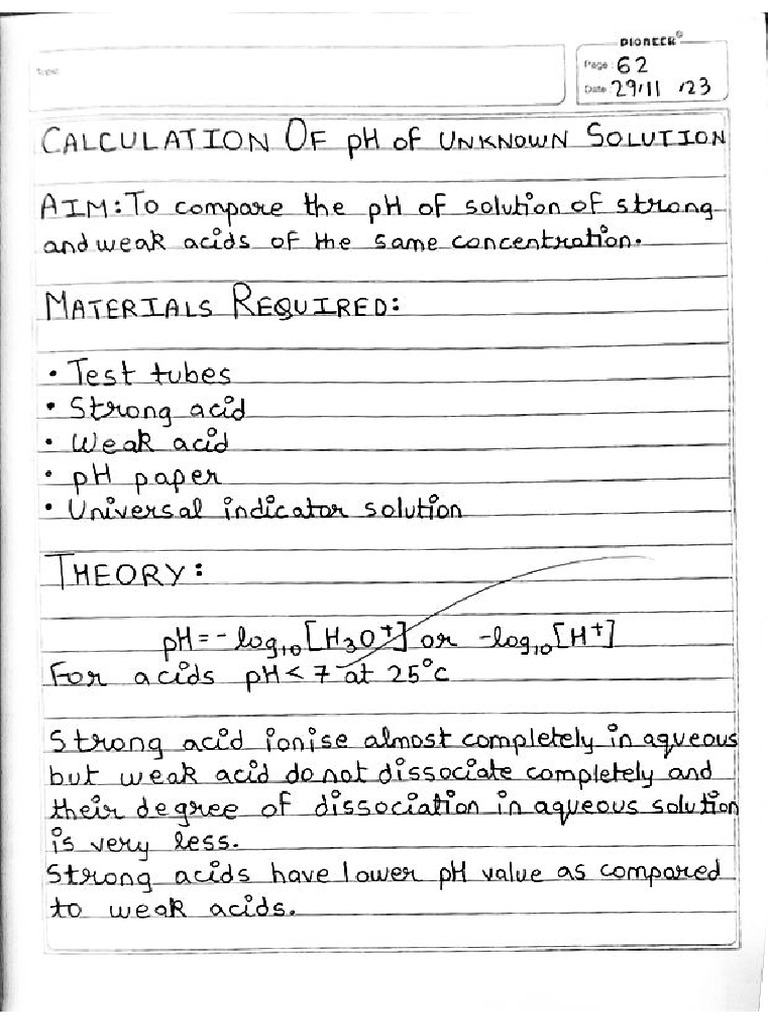 PIONEER
Topic
Page: 62
Date: 29/11/23
CALCULATION OF pH of UNKNOWN SOLUTION
AIM: To compare the pH of solution of strong
and weak acids of the same concentration.
MATERIALS REQUIRED:
• Test tubes
• Strong acid
• Weak acid
• pH paper
• Universal indicator solution
THEORY:
pH = -log₁₀[H3O⁺] or -log₁₀[H⁺]
For acids pH < 7 at 25°C
Strong acid ionise almost completely in aqueous
but weak acid do not dissociate completely and
their degree of dissociation in aqueous solution
is very less.
Strong acids have lower pH value as compared
to weak acids.